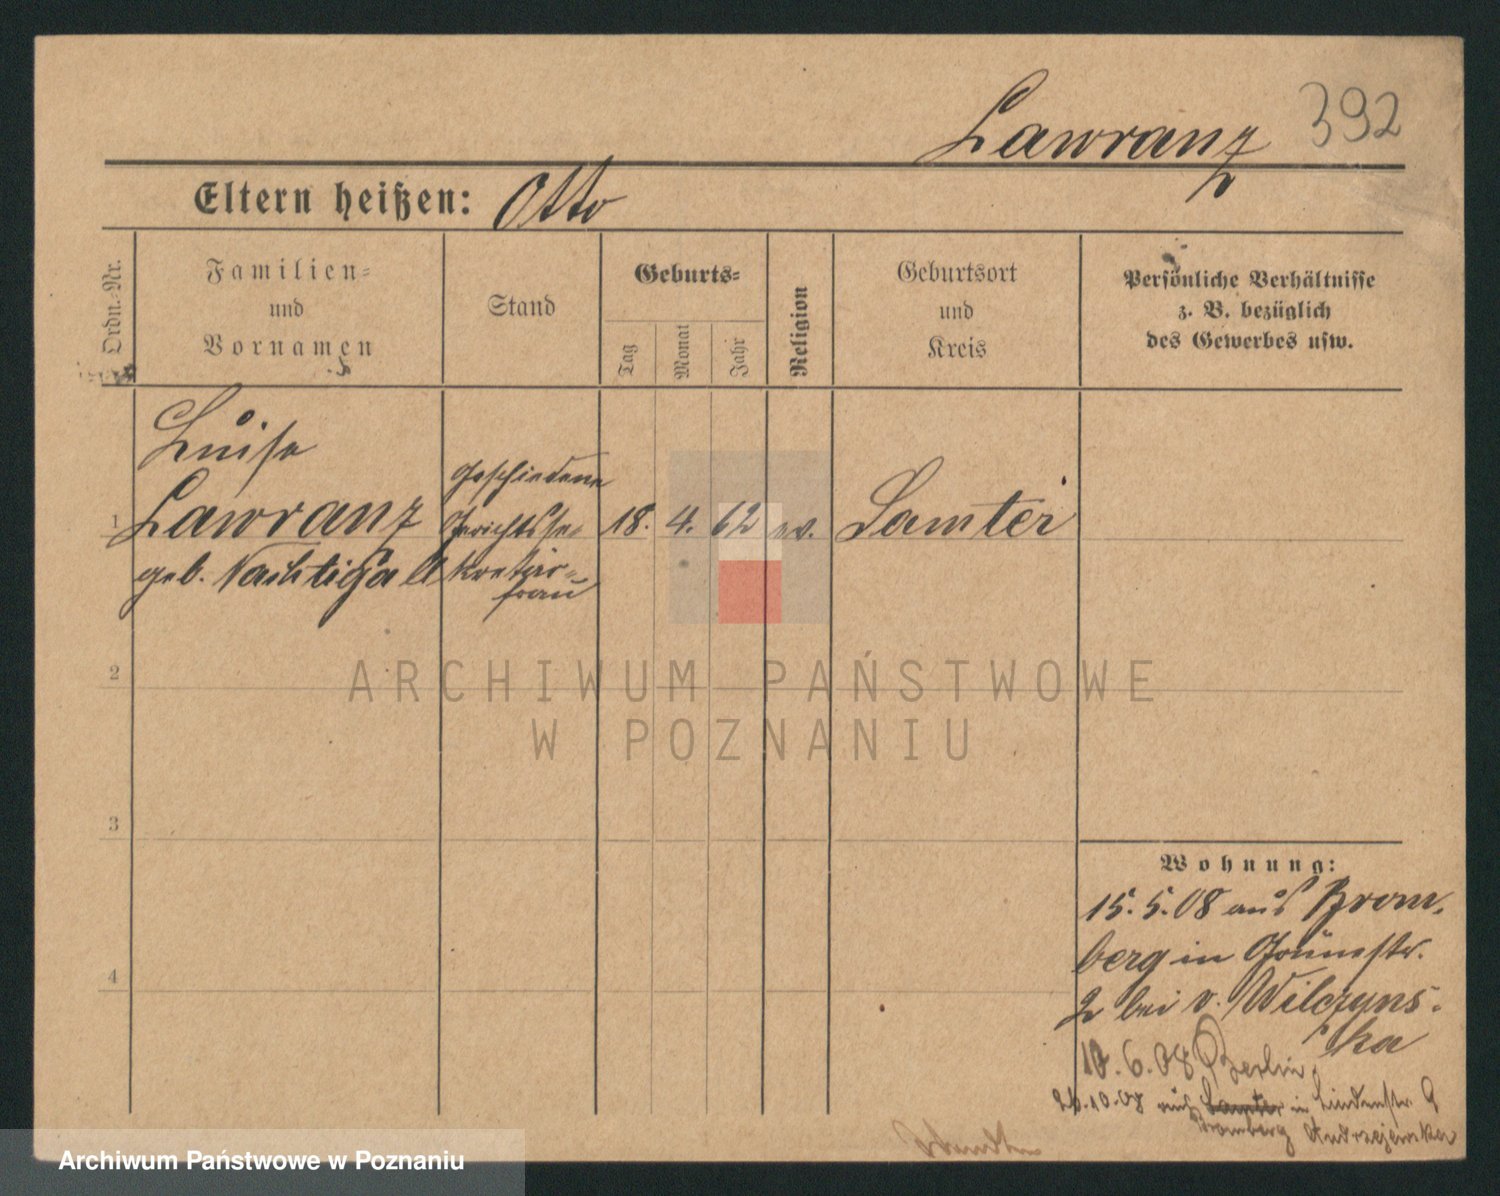 Lawranz 392
Eltern heißen: Otto
Ordn.-Nr.
Familien-
und
Vornamen
Stand
Geburts-
Tag
Monat
Jahr
Religion
Geburtsort
und
Kreis
Persönliche Verhältnisse
z. B. bezüglich
des Gewerbes usw.
1
Luise
Lawranz
geb. Nachtigall
geschiedene
Gerichtsse-
kretär-
frau
18. 4. 62 ev. Samter
2
3
4
Wohnung:
15.5.08 aus Brom-
berg in Grünestr.
2 bei v. Wilczyns-
ka
10.6.08 Berlin
26.10.08 aus Samter in Lindenstr. 9
Bromberg Andrzejewska
ARCHIWUM PAŃSTWOWE
W POZNANIU
Archiwum Państwowe w Poznaniu